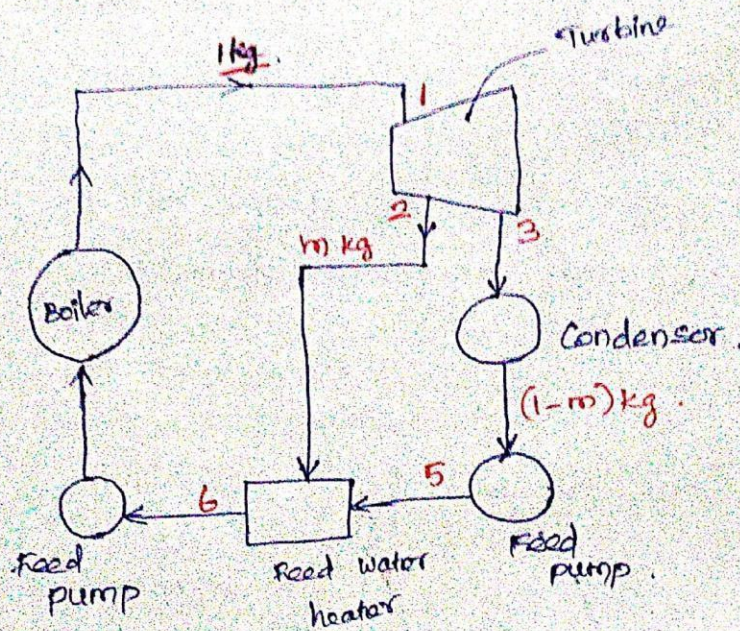 1kg.
Turbine
1
2
3
m kg
Boiler
Condensor.
(1-m) kg.
5
6
Feed
pump
Feed water
heater
Feed
pump.